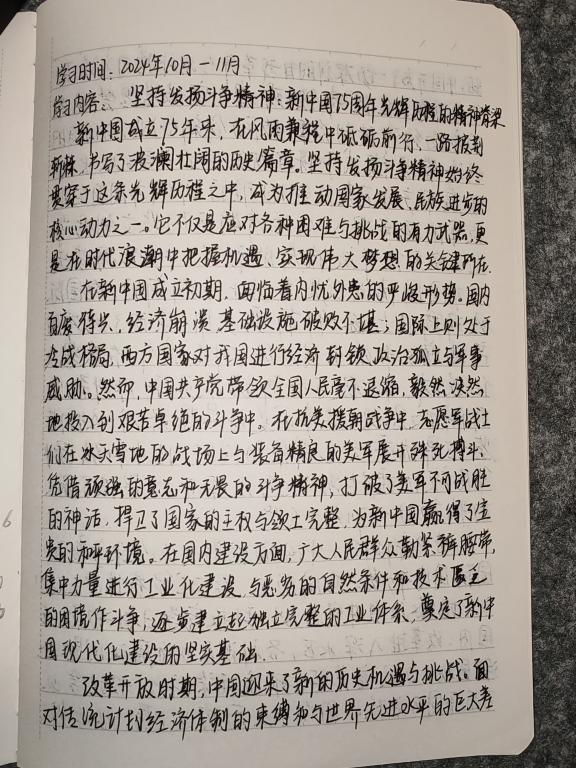 学习时间：2024年10月－11月
学习内容：坚持发扬斗争精神：新中国75周年光辉历程的精神脊梁
新中国成立75年来，在风雨兼程中砥砺前行，一路披荆
斩棘，书写了波澜壮阔的历史篇章。坚持发扬斗争精神始终
贯穿于这条光辉历程之中，成为推动国家发展、民族进步的
核心动力之一。它不仅是应对各种困难与挑战的有力武器，更
是在时代浪潮中把握机遇、实现伟大梦想的关键所在.
在新中国成立初期，面临着内忧外患的严峻形势。国内
百废待兴，经济崩溃，基础设施破败不堪；国际上则处于
冷战格局，西方国家对我国进行经济封锁，政治孤立与军事
威胁。然而，中国共产党带领全国人民毫不退缩，毅然决然
地投入到艰苦卓绝的斗争中。在抗美援朝战争中，志愿军战士
们在冰天雪地的战场上与装备精良的美军展开殊死搏斗，
凭借顽强的意志和无畏的斗争精神，打破了美军不可战胜
的神话，捍卫了国家的主权与领土完整，为新中国赢得了宝
贵的和平环境。在国内建设方面，广大人民群众勒紧裤腰带，
集中力量进行工业化建设，与恶劣的自然条件和技术匮乏
的困境作斗争，逐步建立起独立完整的工业体系，奠定了新中
国现代化建设的坚实基础.
改革开放时期，中国迎来了新的历史机遇与挑战。面
对传统计划经济体制的束缚和与世界先进水平的巨大差